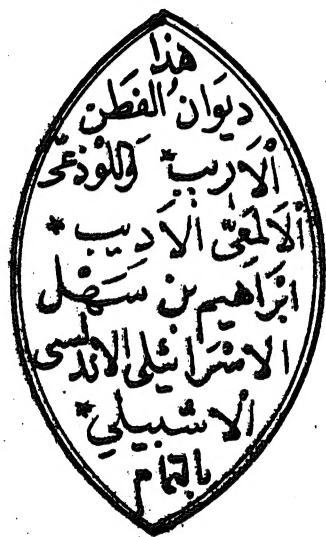 هذا
ديوَانُ الفَطَن
اَلْاَرِيبِ * وَاللَّوْذَعِّى
اَلْاَلْمَعِىّ الْاَدِيبِ *
اِبْرَاهيم بن سَهْل
الاسْرَائيلى الاندلسى
اَلْاشبيلي *
بالتمام